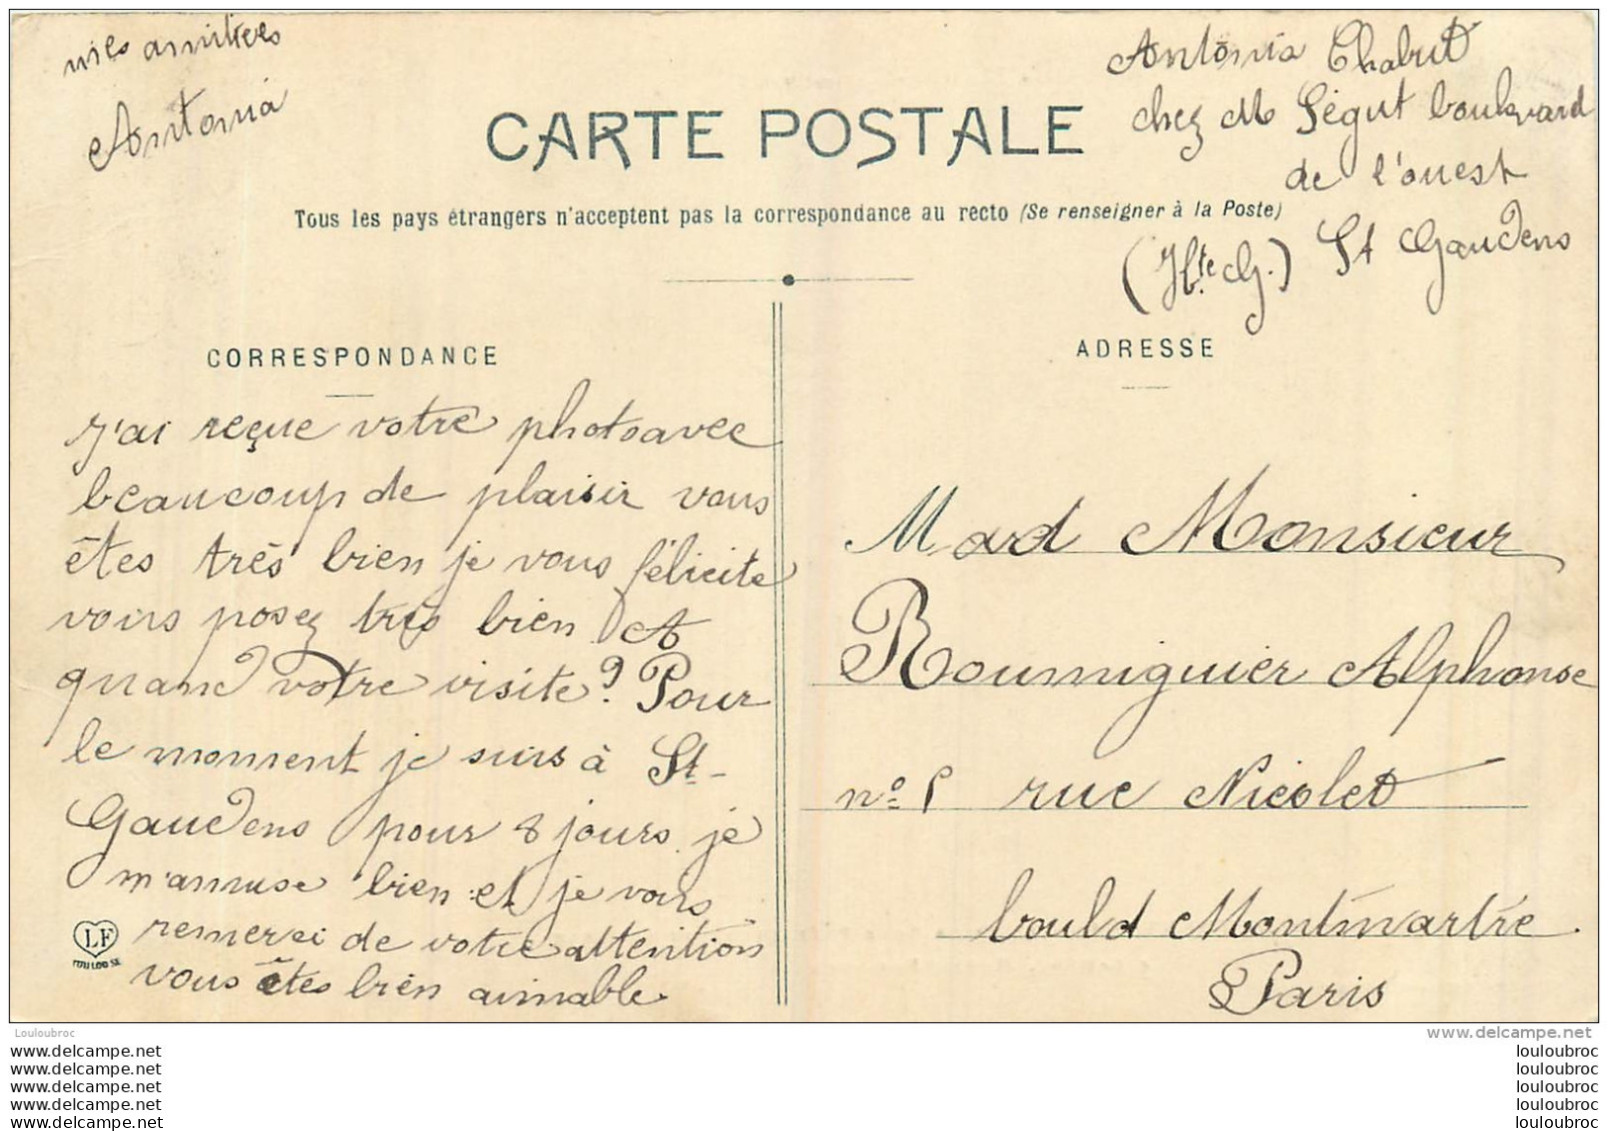 mes amitiees
Antonia
Antonia Chabut
chez M Ségut boulevard
de l'ouest
(Hte G.) St Gaudens
CARTE POSTALE
Tous les pays étrangers n'acceptent pas la correspondance au recto (Se renseigner à la Poste)
CORRESPONDANCE
J'ai reçue votre photo avec
beaucoup de plaisir vous
êtes très bien je vous félicite
vous posez très bien A
quand votre visite? Pour
le moment je suis à St-
Gaudens pour 8 jours. je
m'amuse bien et je vous
remerci de votre attention
vous êtes bien aimable
LF
TOULOUSE
ADRESSE
Monsieur
Roumiguier Alphonse
no rue Nicolet
bould Montmartre.
Paris
Louloubroc
www.delcampe.net
www.delcampe.net
www.delcampe.net
www.delcampe.net
www.delcampe.net
www.delcampe.net
louloubroc
louloubroc
louloubroc
louloubroc
louloubroc